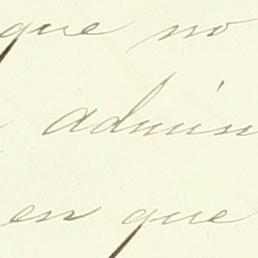 que no
admin
en que